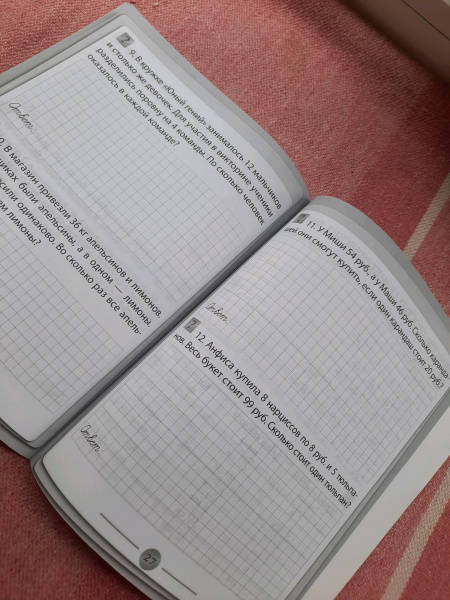 2 9. В кружке «Юный гений» занималось 12 мальчиков
и столько же девочек. Для участия в викторине ученики
разделились поровну на 4 команды. По сколько человек
оказалось в каждой команде?
Ответ.
В магазин привезли 36 кг апельсинов и лимонов.
были апельсины, а в одном — лимоны.
одинаково. Во сколько раз все апель-
лимоны?
11. У Миши 54 руб., а у Маши 46 руб. Сколько каранда-
шей они смогут купить, если один карандаш стоит 20 руб.?
Ответ.
2 12. Анфиса купила 8 нарциссов по 8 руб. и 5 тюльпа-
нов. Весь букет стоит 99 руб. Сколько стоит один тюльпан?
Ответ.
27